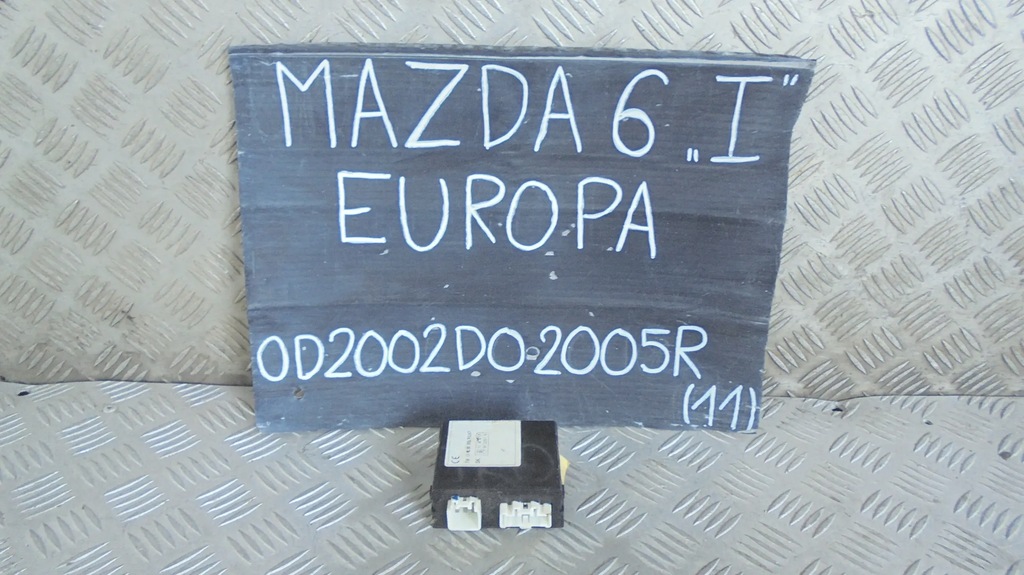 MAZDA 6 „I"
EUROPA
OD2002DO2005R
(11)
CE